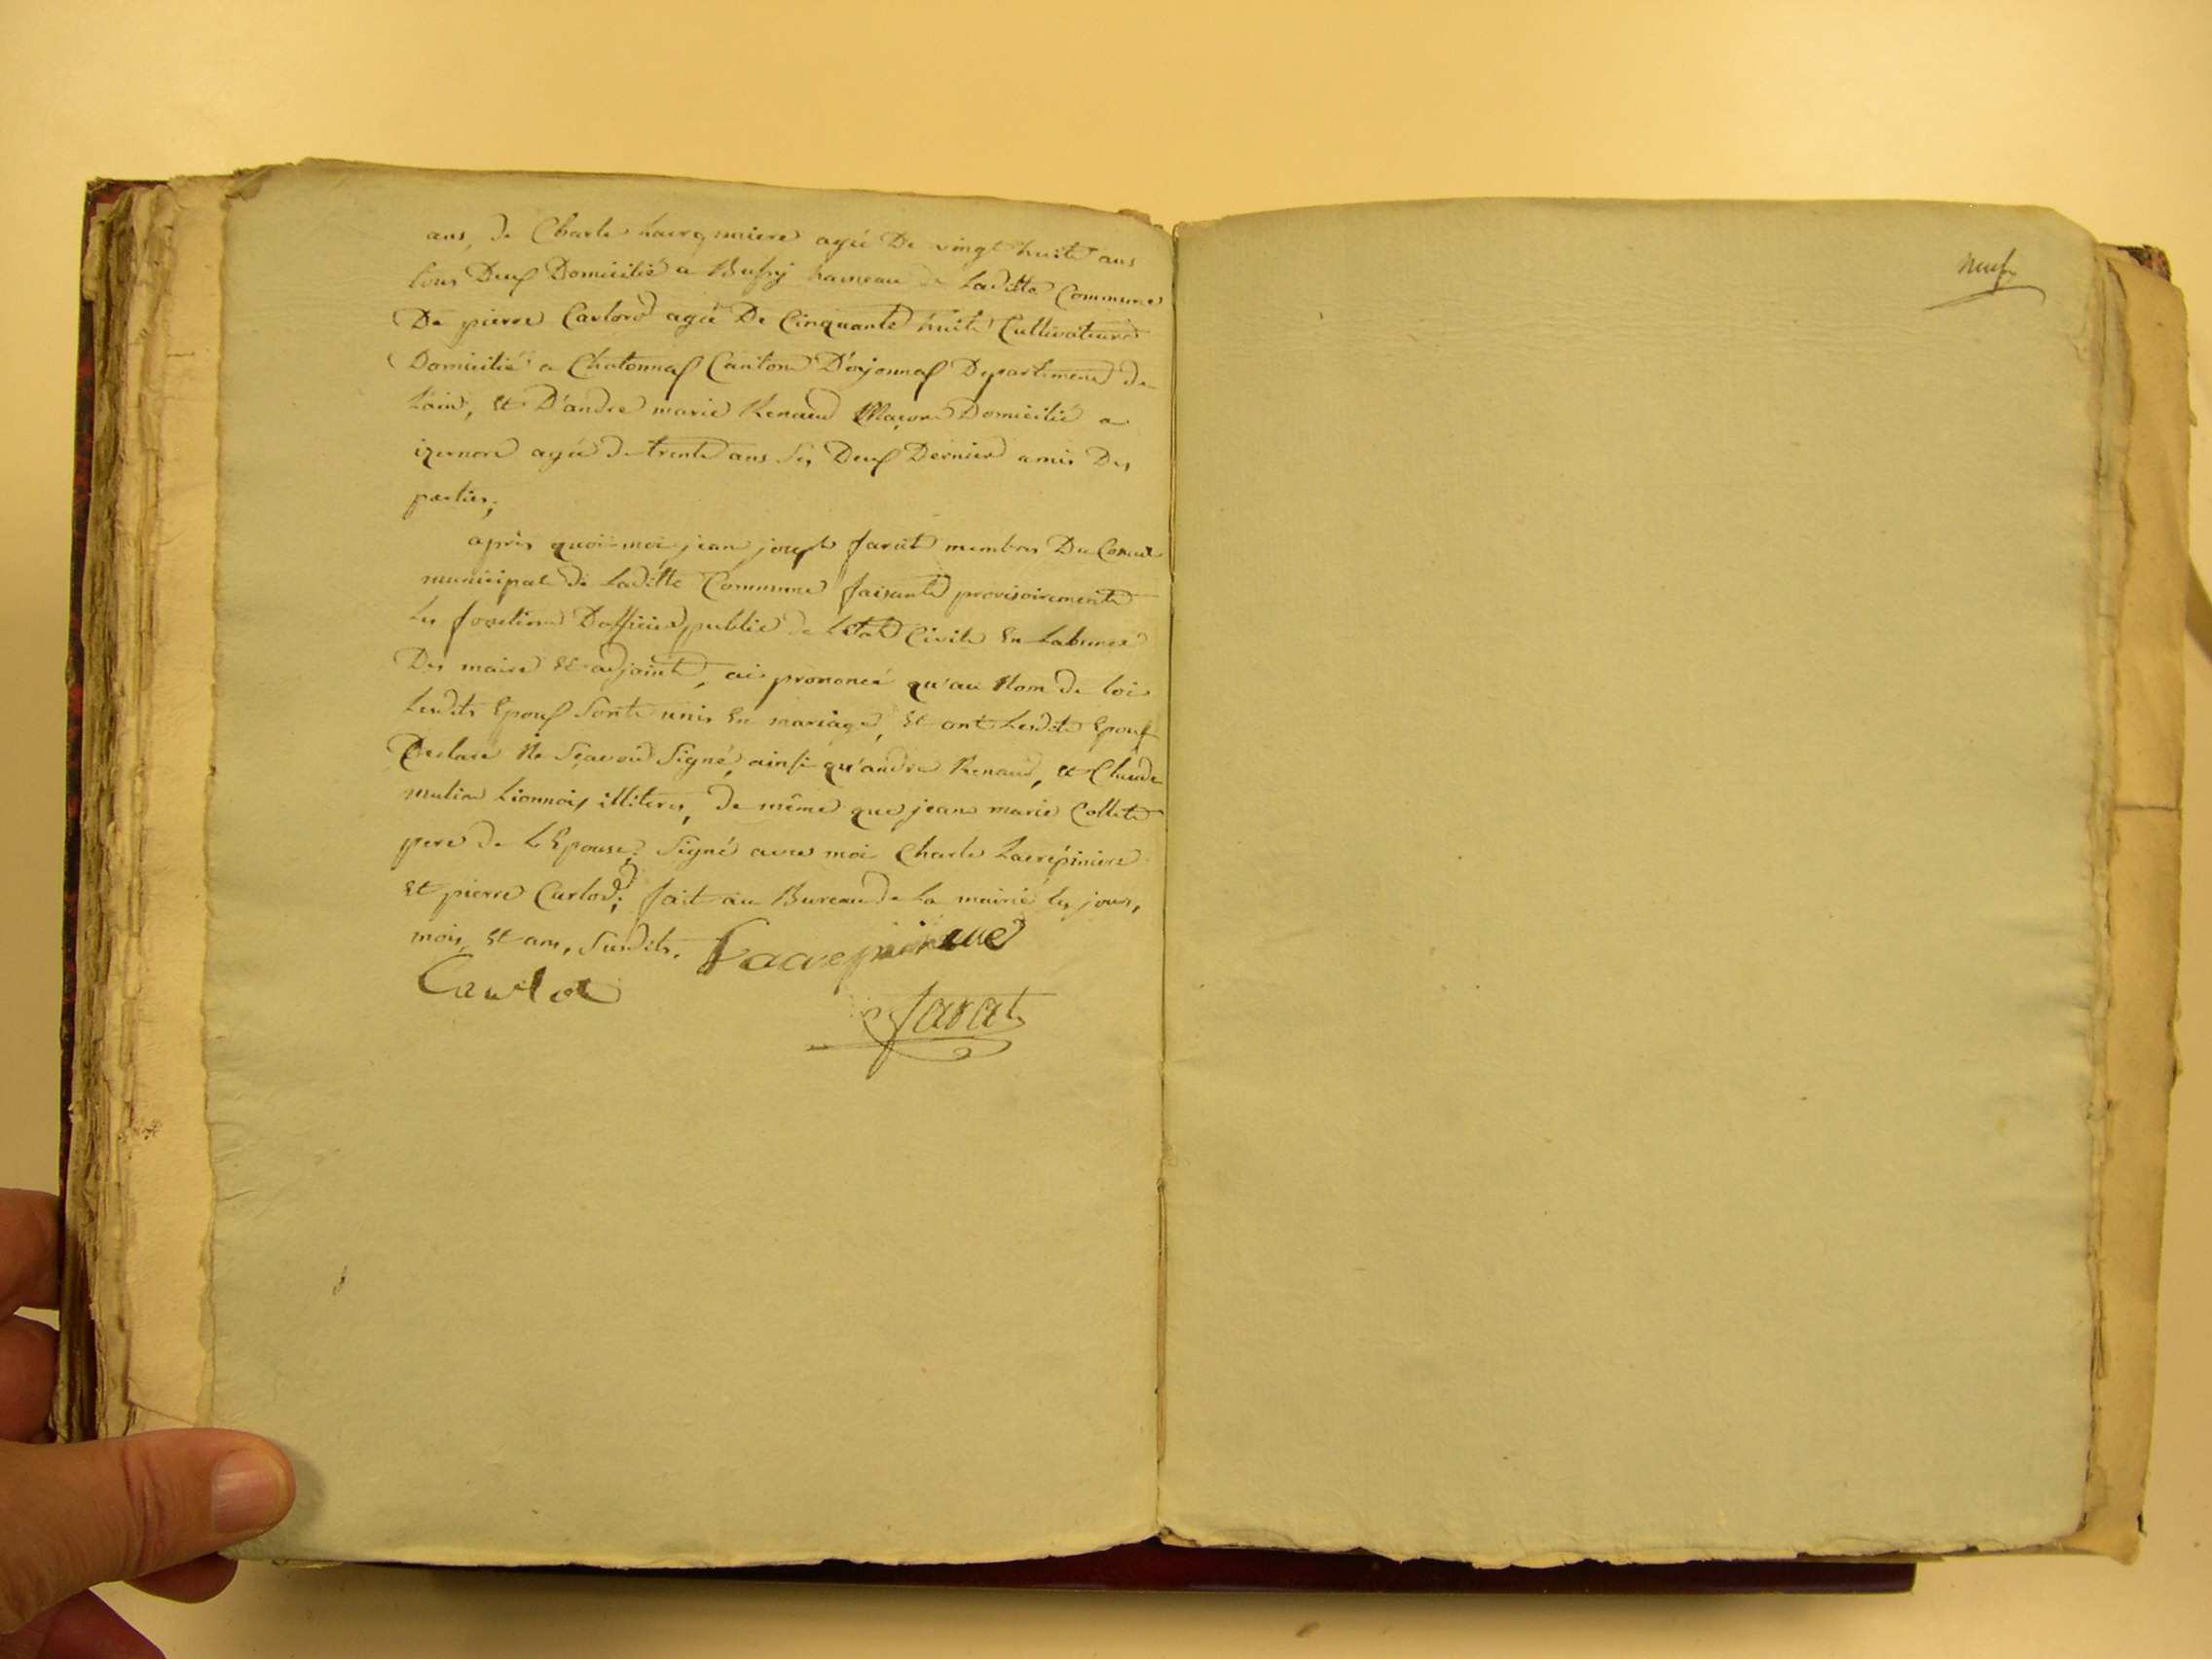 ans, de Charle Lacrepiniere agée De vingt huite ans
tous Deux Domicilié a Bussy hameau de Laditte Commune
De pierre Carlod agée De Cinquante huite Cultivateure
Domicilié a Chatonnax Canton D'oyonnax Departement de
L'ain, et D'andre marie Renaud Maçon Domicilié a
izernore agée de trente ans Les Deux Dernier amis Des
parties;
après quoi moi jean joseph farat membres Du Conseil
municipal de Laditte Commune faisante provisoirement
Les fonction D'officier public de L'Etat Civile En Labsence
Des maire et adjoint, ai prononcé qu'au Nom de loi
Lesdits Epoux Sont unis En mariage, et ont Lesdits Epoux
Declaré Ne Sçavoir Signé, ainsi qu'andre Renaud, et Claude
Lionnois illiteres, de même que jean marie Collet
pere de L'Epouse; Signé avec moi Charle Lacrepiniere
et pierre Carlod; fait au Bureau de La mairie les jour,
mois, et ans, Susdits. Lacrepiniere
Carlod
farat
neuf